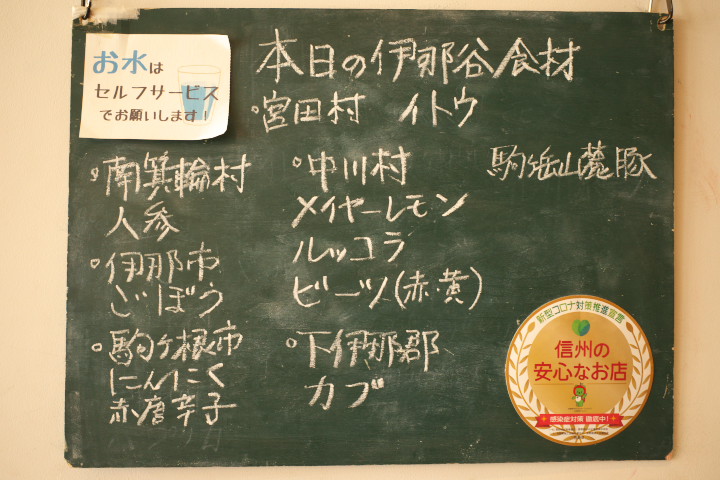 お水は
セルフサービス
でお願いします！
本日の伊那谷食材
・宮田村 イトウ
駒ヶ岳山麓豚
・南箕輪村
人参
・伊那市
ごぼう
・駒ヶ根市
にんにく
赤唐辛子
・中川村
メイヤーレモン
ルッコラ
ビーツ(赤・黄)
・下伊那郡
カブ
新型コロナ対策推進宣言
信州の
安心なお店
感染症対策 徹底中！